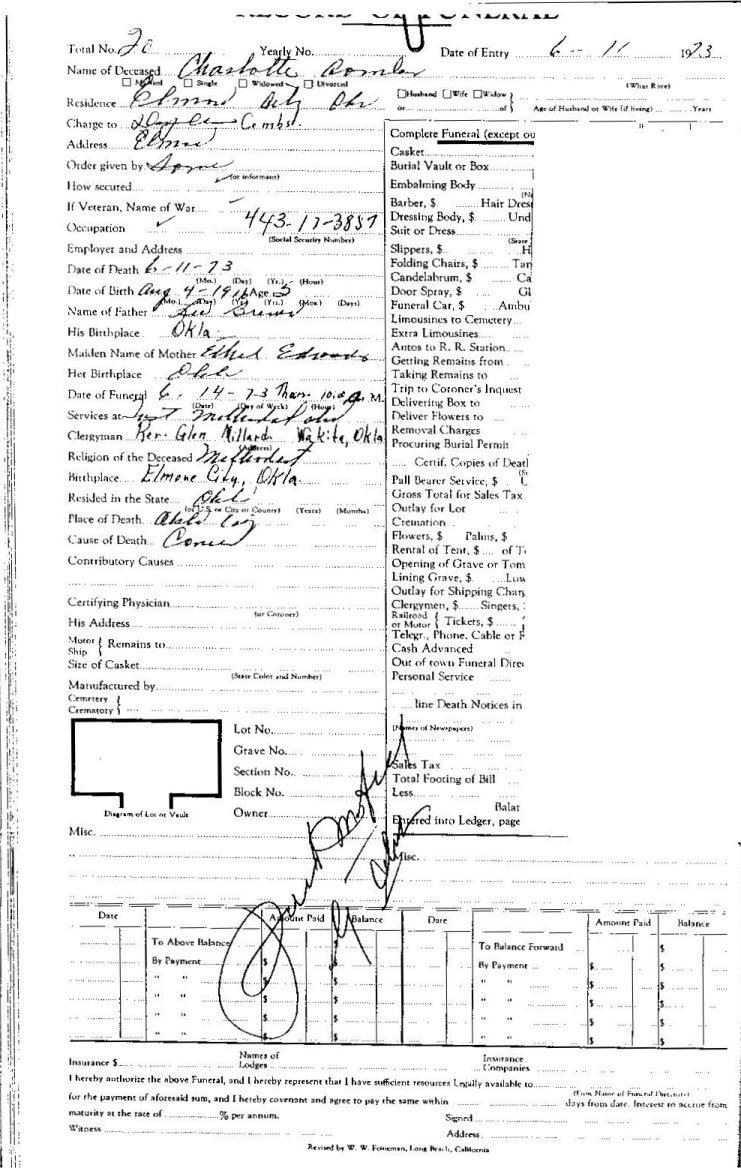 RECORD OF FUNERAL
Total No. 20 Yearly No. Date of Entry 6 - 11 1973
Name of Deceased Charlotte
Married Single Widowed Divorced
(What Race)
Husband Wife Widow
or of Age of Husband or Wife (if living) Years
Residence Elmore City Okla
Charge to Combs
Address Elmore
Order given by Same
(or informant)
How secured
If Veteran, Name of War
Occupation 443-17-3857
(Social Security Number)
Employer and Address
Date of Death 6-11-73
(Mo.) (Day) (Yr.) (Hour)
Date of Birth Aug 4-1916 Age
(Mo.) (Day) (Yr.) (Yrs.) (Mos.) (Days)
Name of Father
His Birthplace Okla
Maiden Name of Mother Ethel Edwards
Her Birthplace Okla
Date of Funeral 6 - 14 - 73 Thurs. M.
(Date) (Day of Week) (Hour)
Services at
Clergyman Rev. Glen Millard Wakita, Okla
(Address)
Religion of the Deceased Methodist
Birthplace Elmore City, Okla.
Resided in the State Okla
(or U.S. or City or County) (Years) (Months)
Place of Death Okla City
Cause of Death Cancer
Contributory Causes
Certifying Physician
(or Coroner)
His Address
Motor
Ship Remains to
Size of Casket
(State Color and Number)
Manufactured by
Cemetery
Crematory
Lot No.
Grave No.
Section No.
Block No.
Owner
Diagram of Lot or Vault
Misc.
Complete Funeral (except ou
Casket
Burial Vault or Box
Embalming Body
Barber, $ Hair Dres
Dressing Body, $ Und
Suit or Dress
Slippers, $ H
Folding Chairs, $ Tar
Candelabrum, $ Ca
Door Spray, $ Gl
Funeral Car, $ Ambu
Limousines to Cemetery
Extra Limousines
Autos to R. R. Station
Getting Remains from
Taking Remains to
Trip to Coroner's Inquest
Delivering Box to
Deliver Flowers to
Removal Charges
Procuring Burial Permit
Certif. Copies of Deat
Pall Bearer Service, $
Gross Total for Sales Tax
Outlay for Lot
Cremation
Flowers, $ Palms, $
Rental of Tent, $ of T
Opening of Grave or Tom
Lining Grave, $ Low
Outlay for Shipping Charg
Clergymen, $ Singers,
Railroad
or Motor Tickets, $
Telegr., Phone, Cable or F
Cash Advanced
Out of town Funeral Direc
Personal Service
line Death Notices in
(Names of Newspapers)
Sales Tax
Total Footing of Bill
Less
Balar
Entered into Ledger, page
Misc.
Date Amount Paid Balance Date Amount Paid Balance
To Above Balance $ To Balance Forward $
By Payment $ $ By Payment $ $
" " $ $ " " $ $
" " $ $ " " $ $
" " $ $ " " $ $
" " $ $ " " $ $
Insurance $ Names of Lodges Insurance Companies
I hereby authorize the above Funeral, and I hereby represent that I have sufficient resources Legally available to
(Firm Name of Funeral Directors)
for the payment of aforesaid sum, and I hereby covenant and agree to pay the same within days from date. Interest to accrue from
maturity at the rate of % per annum. Signed
Witness Address
Revised by W. W. Foineman, Long Beach, California